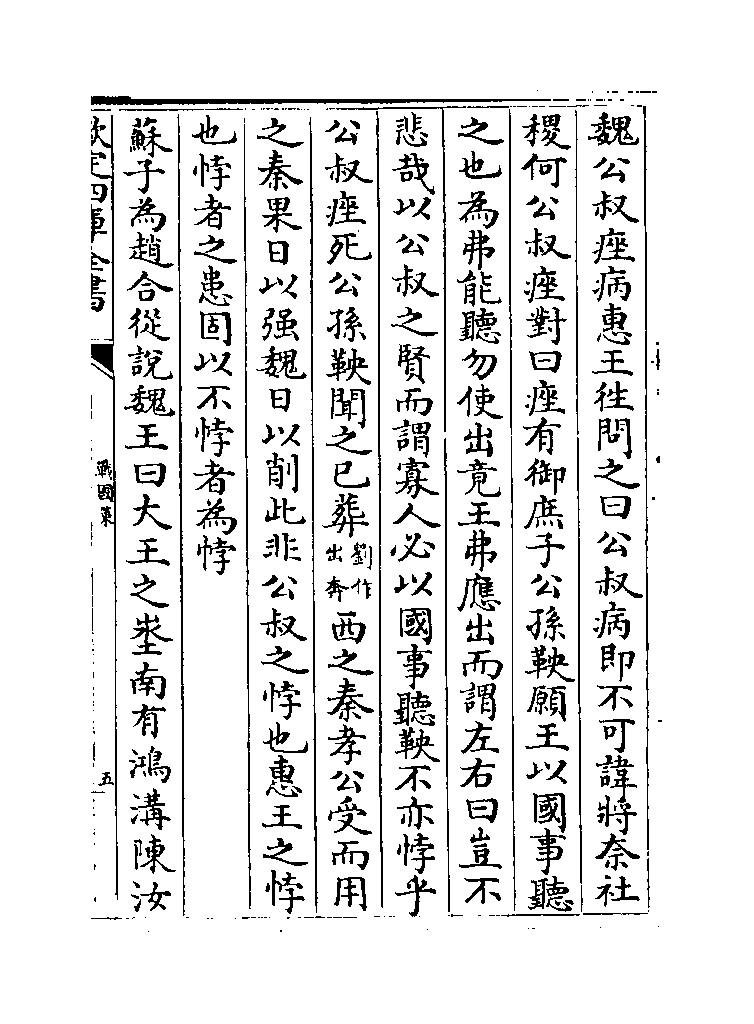 魏公叔痤病惠王徃問之曰公叔病即不可諱將奈社
稷何公叔痤對曰痤有御庶子公孫鞅願王以國事聽
之也為弗能聽勿使出竟王弗應出而謂左右曰豈不
悲哉以公叔之賢而謂寡人必以國事聽鞅不亦悖乎
公叔痤死公孫鞅聞之已葬劉作出奔西之秦孝公受而用
之秦果日以强魏日以削此非公叔之悖也惠王之悖
也悖者之患固以不悖者為悖
蘇子為趙合從說魏王曰大王之埊南有鴻溝陳汝
欽定四庫全書
戰國策
五